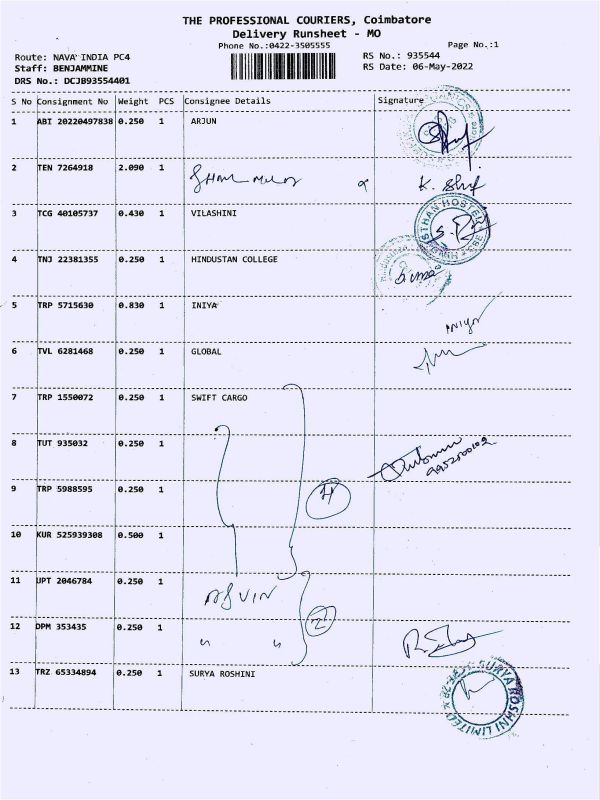 THE PROFESSIONAL COURIERS, Coimbatore
Delivery Runsheet - MO
Phone No.:0422-3505555
Page No.:1
Route: NAVA INDIA PC4
RS No.: 935544
Staff: BENJAMMINE
RS Date: 06-May-2022
DRS No.: DCJB93554401
S No Consignment No Weight PCS Consignee Details Signature
1 ABI 20220497838 0.250 1 ARJUN
2 TEN 7264918 2.090 1
K. Shf
3 TCG 40105737 0.430 1 VILASHINI
4 TNJ 22381355 0.250 1 HINDUSTAN COLLEGE
5 TRP 5715630 0.830 1 INIYA
iniya
6 TVL 6281468 0.250 1 GLOBAL
7 TRP 1550072 0.250 1 SWIFT CARGO
8 TUT 935032 0.250 1
9 TRP 5988595 0.250 1 4
10 KUR 525939308 0.500 1
11 UPT 2046784 0.250 1 ASVIN
12 DPM 353435 0.250 1 " " 2
13 TRZ 65334894 0.250 1 SURYA ROSHINI
SURYA ROSHNI LIMITED